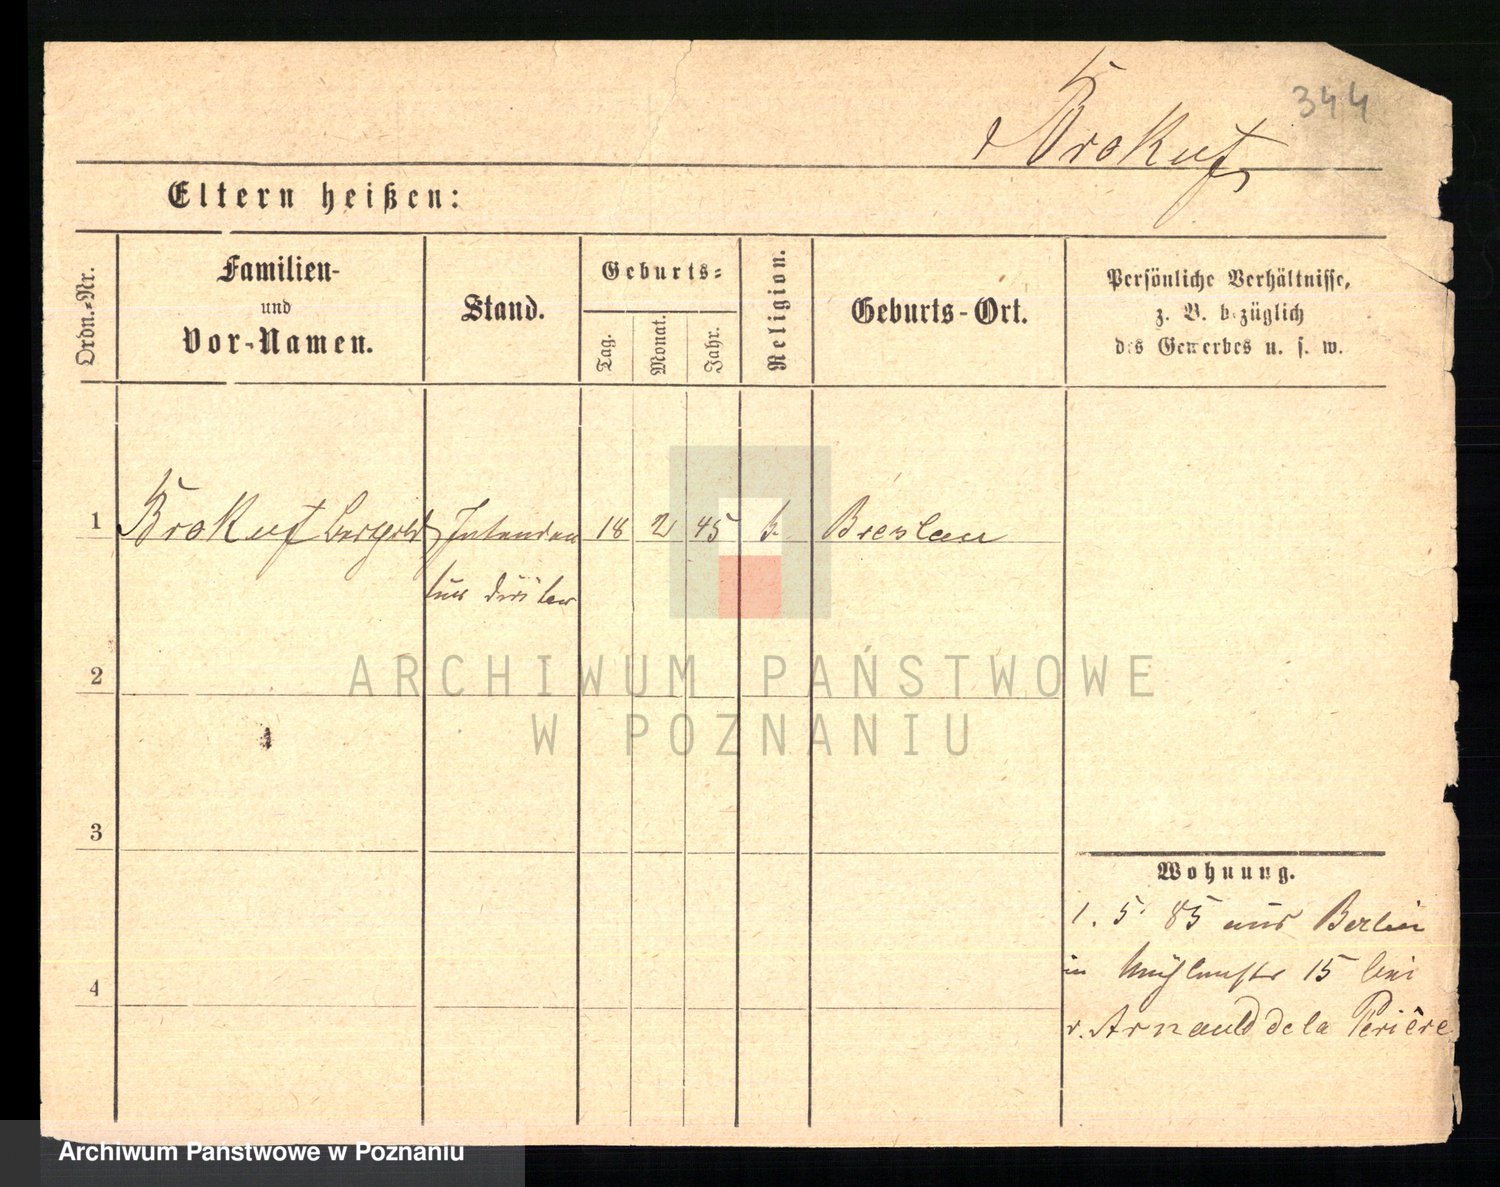 344
Brokuf
Eltern heißen:
Ordn.-Nr.
Familien-
und
Vor-Namen.
Stand.
Geburts-
Tag.
Monat.
Jahr.
Religion.
Geburts-Ort.
Persönliche Verhältnisse,
z. B. bezüglich
des Gewerbes u. s. w.
1 Brokuf 18 2 45 Breslau
2
3
4
Wohnung.
1. 5. 85 aus Berlin
in Mühlenstr 15 bei
v. Arnauld de la Perière
ARCHIWUM PAŃSTWOWE
W POZNANIU
Archiwum Państwowe w Poznaniu